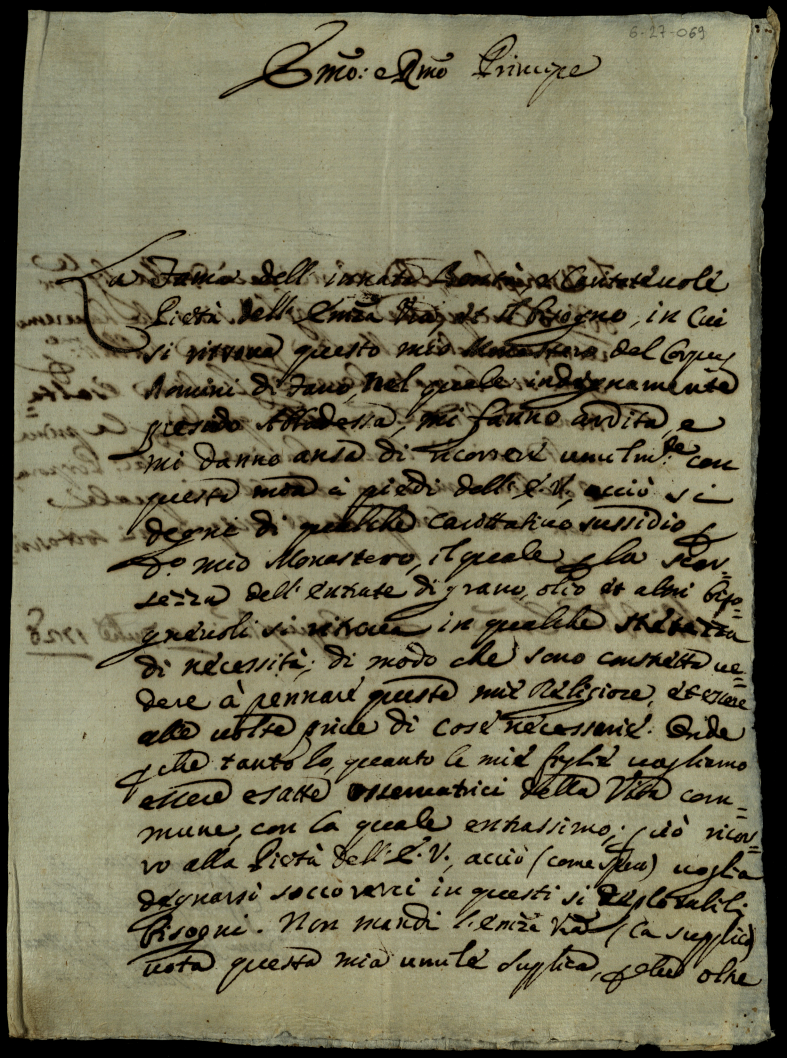 6-27-069
Emo: e Rmo Principe
La Fama dell'innata Bontà, et Caritatevole
Pietà dell'Emza Vra, et il bisogno, in cui
si ritrova questo mio Monastero del Corpus
Domini di Fano, nel quale indegnamente
presiedo Abbadessa, mi fanno ardita, e
mi danno ansa di ricorrere umilm.te con
questa mia à piedi dell'E.V., acciò si
degni di qualche carittativo sussidio p
do mio Monastero, il quale p la scar=
sezza dell'entrate di grano, olio et altri biso=
gnevoli si ritrova in qualche strettezza
di necessità; di modo che sono constretta ve=
dere à pennare queste mie Religiose, et essere
alle volte prive di cose necessarie. E
p che tanto Io, quanto le mie figlie vogliamo
essere esatte osservatrici della Vita com=
mune, con la quale entrassimo; p ciò ricor=
ro alla Pietà dell'E.V., acciò (come spero) voglia
degnarsi soccorerci in questi si deplorabili
bisogni. Non mandi l'Emza Vra (la supplico)
vota questa mia umile Suplica, p che oltre